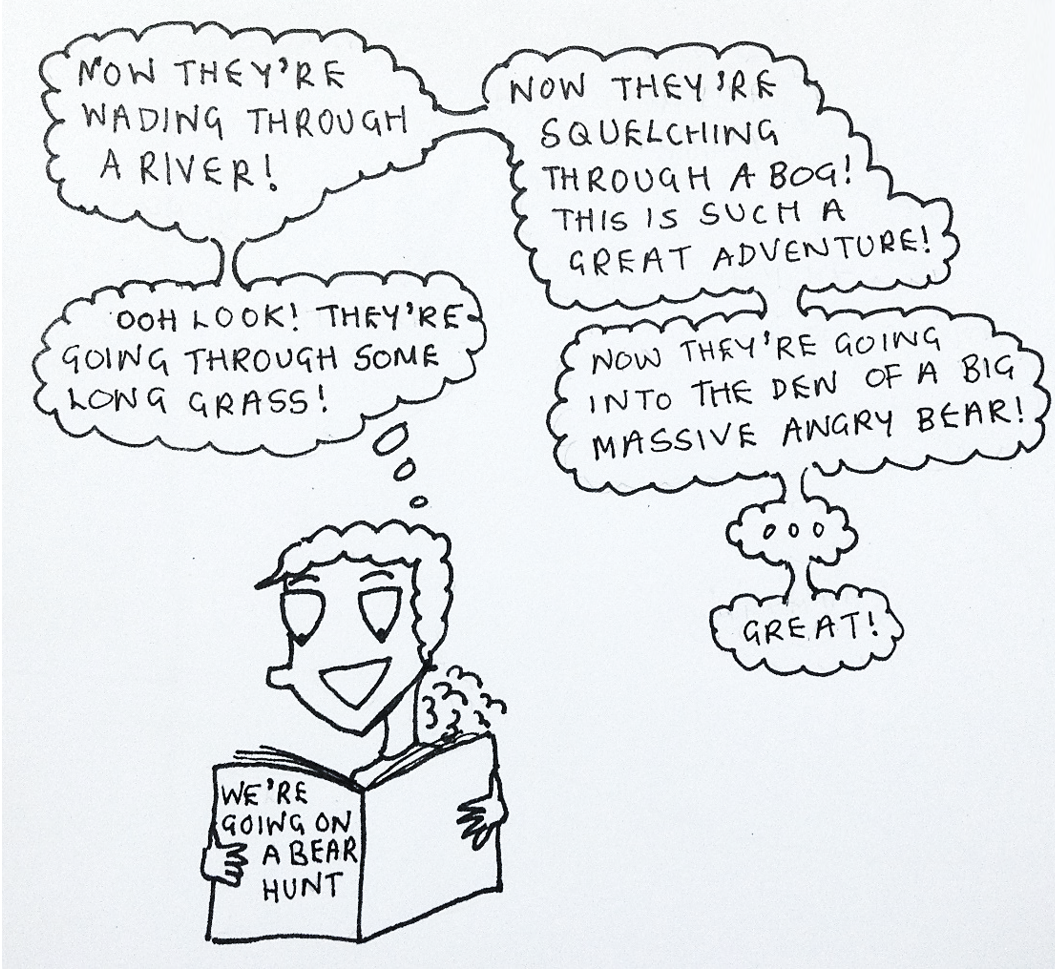 OOH LOOK! THEY'RE
GOING THROUGH SOME
LONG GRASS!
NOW THEY'RE
WADING THROUGH
A RIVER!
NOW THEY'RE
SQUELCHING
THROUGH A BOG!
THIS IS SUCH A
GREAT ADVENTURE!
NOW THEY'RE GOING
INTO THE DEN OF A BIG
MASSIVE ANGRY BEAR!
...
GREAT!
WE'RE
GOING ON
A BEAR
HUNT